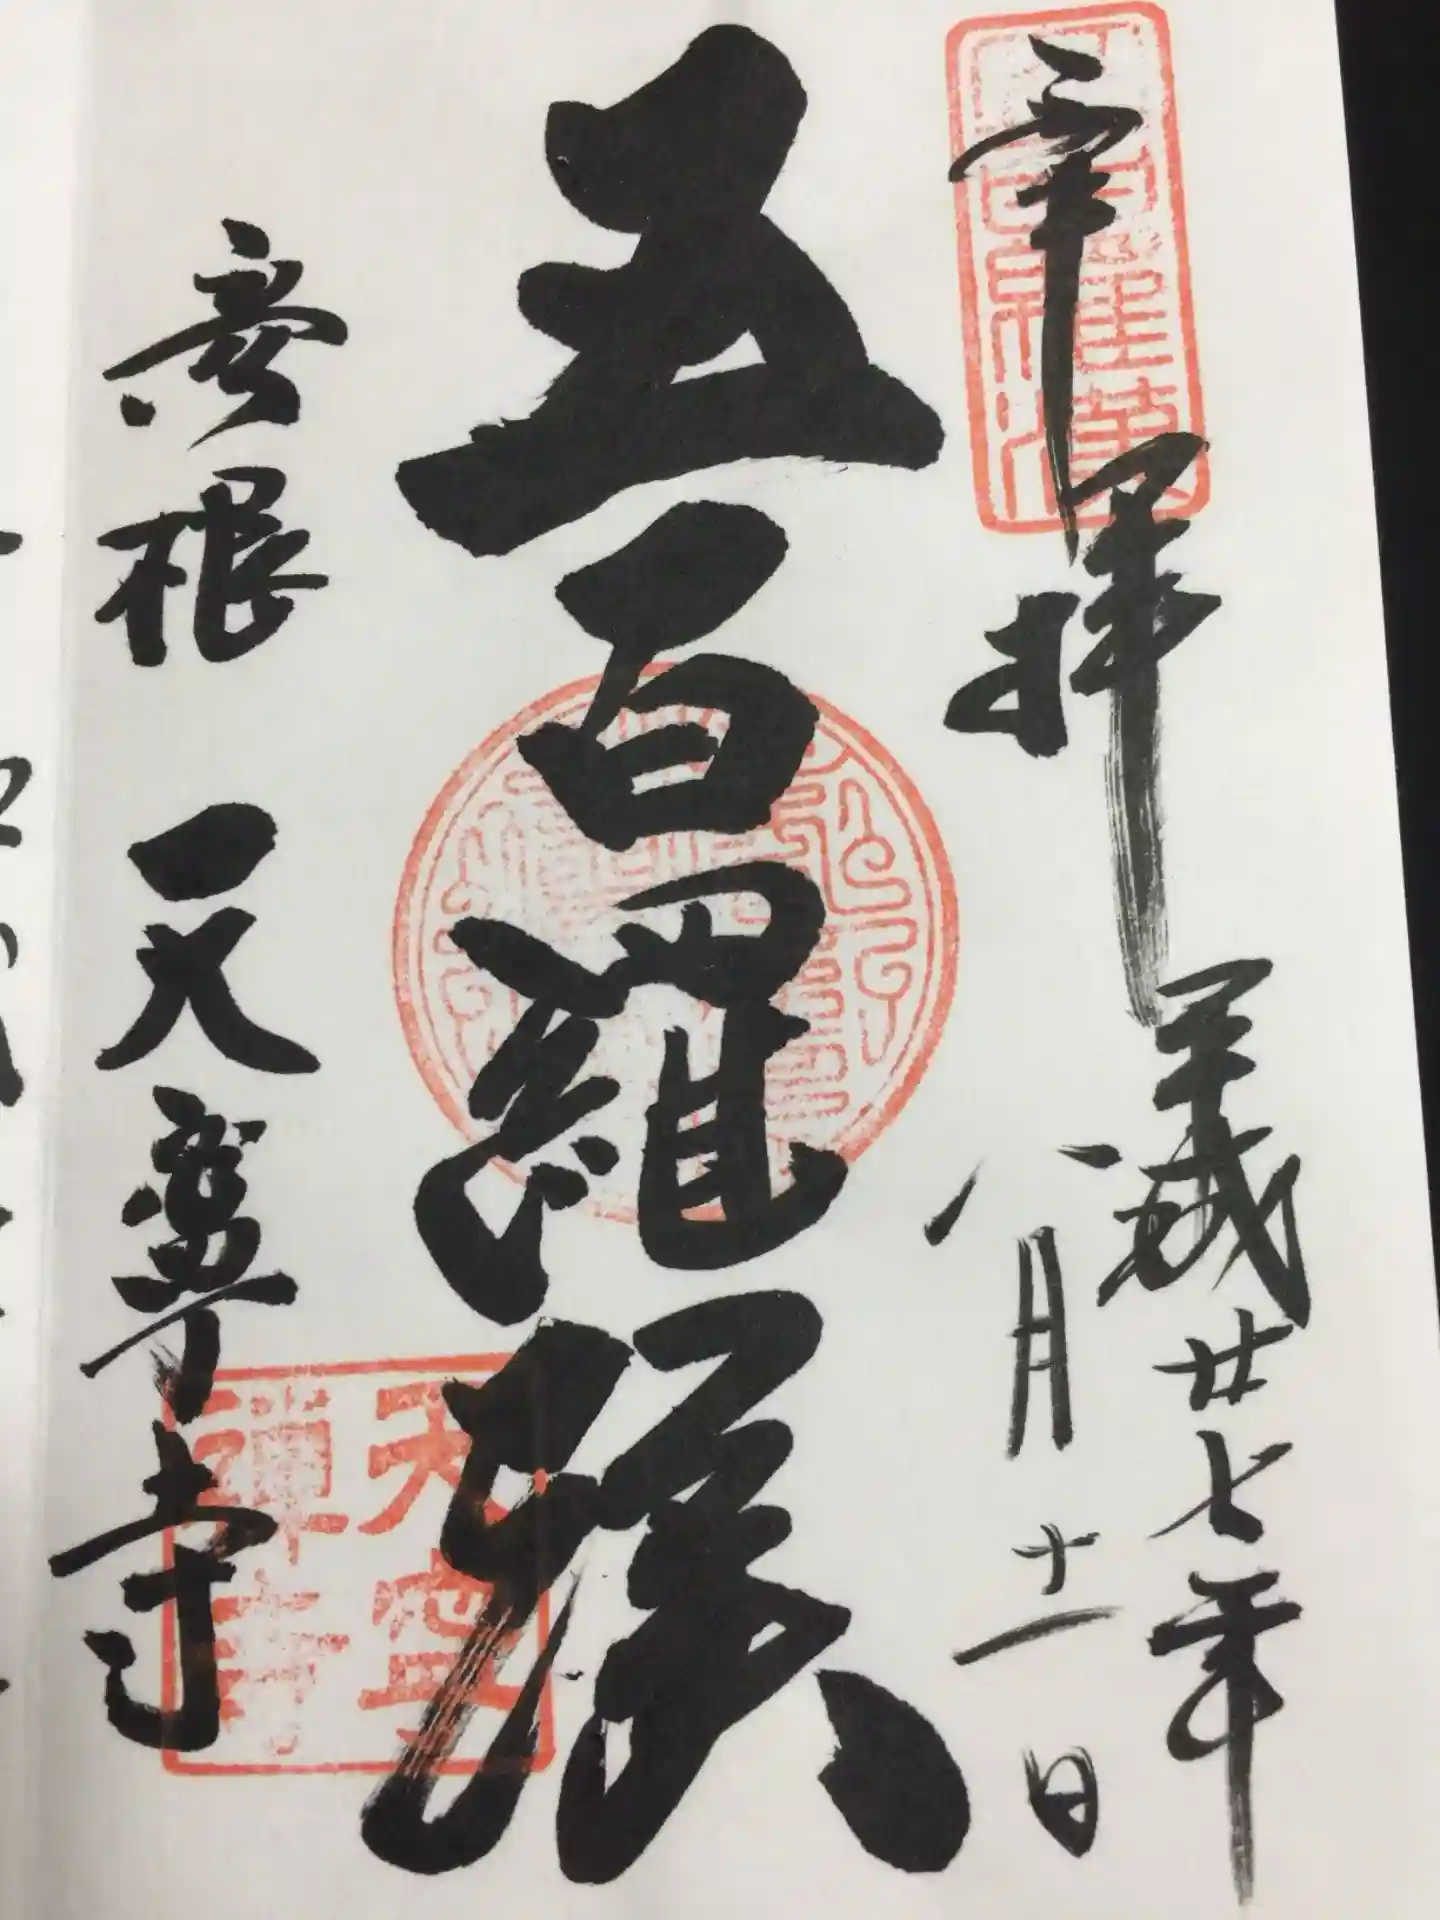 奉拝
平成廿七年
八月十一日
五百羅漢
彦根 天寧寺
天寧
禅寺